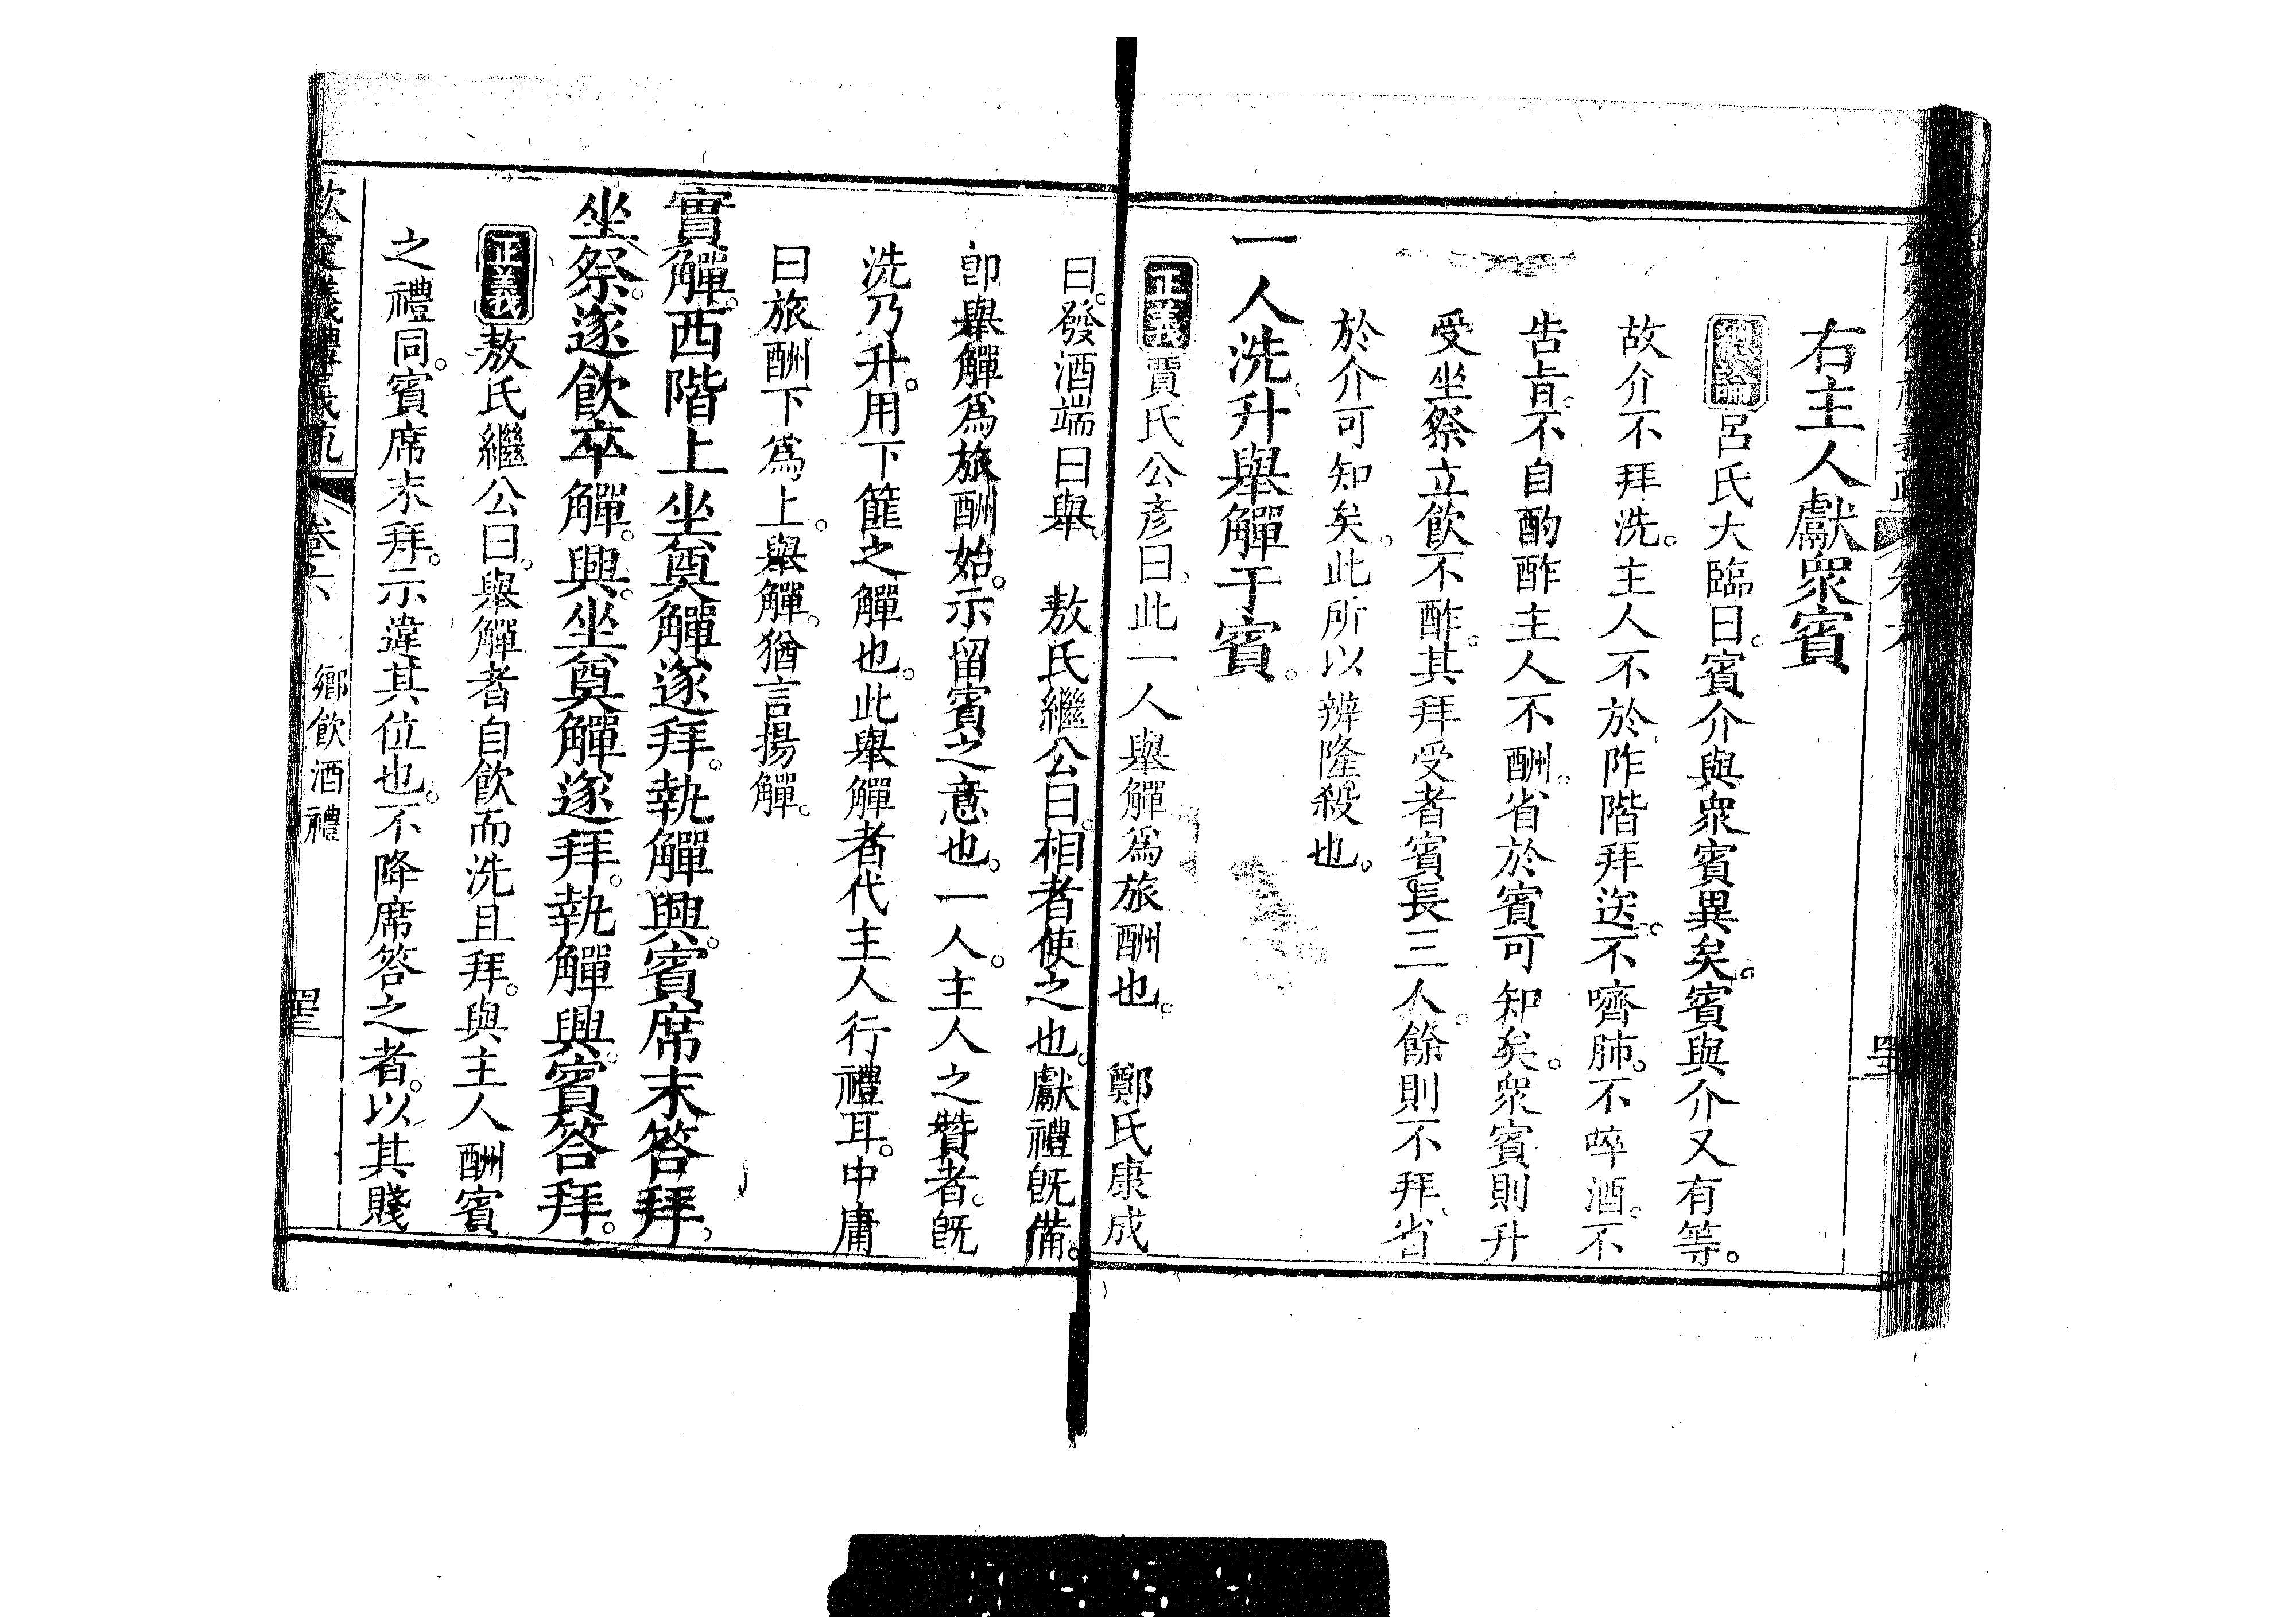 右主人獻衆賓
總論呂氏大臨曰。賓介與衆賓異矣。賓與介又有等。
故介不拜洗。主人不於阼階拜送。不嚌肺。不啐酒。不
告旨。不自酌酢主人不酬。省於賓可知矣。衆賓則升
受坐祭立飮不酢。其拜受者賓長三人。餘則不拜。省
於介可知矣。此所以辨隆殺也。
一人洗。升舉觶于賓。
正義賈氏公彥曰。此一人舉觶爲旅酬也。 鄭氏康成
曰。發酒端曰舉。 敖氏繼公曰。相者使之也。獻禮旣備。
卽舉觶爲旅酬始。示留賓之意也。一人。主人之贊者。旣
洗乃升。用下篚之觶也。此舉觶者代主人行禮耳。中庸
曰旅酬下爲上。舉觶。猶言揚觶。
實觶。西階上坐奠觶遂拜。執觶興。賓席末答拜。
坐祭。遂飮卒觶。興。坐奠觶遂拜。執觶興。賓答拜。
正義敖氏繼公曰。舉觶者自飮而洗且拜。與主人酬賓
之禮同。賓席末拜。示違其位也。不降席答之者。以其賤
欽定儀禮義疏 卷六 鄉飮酒禮